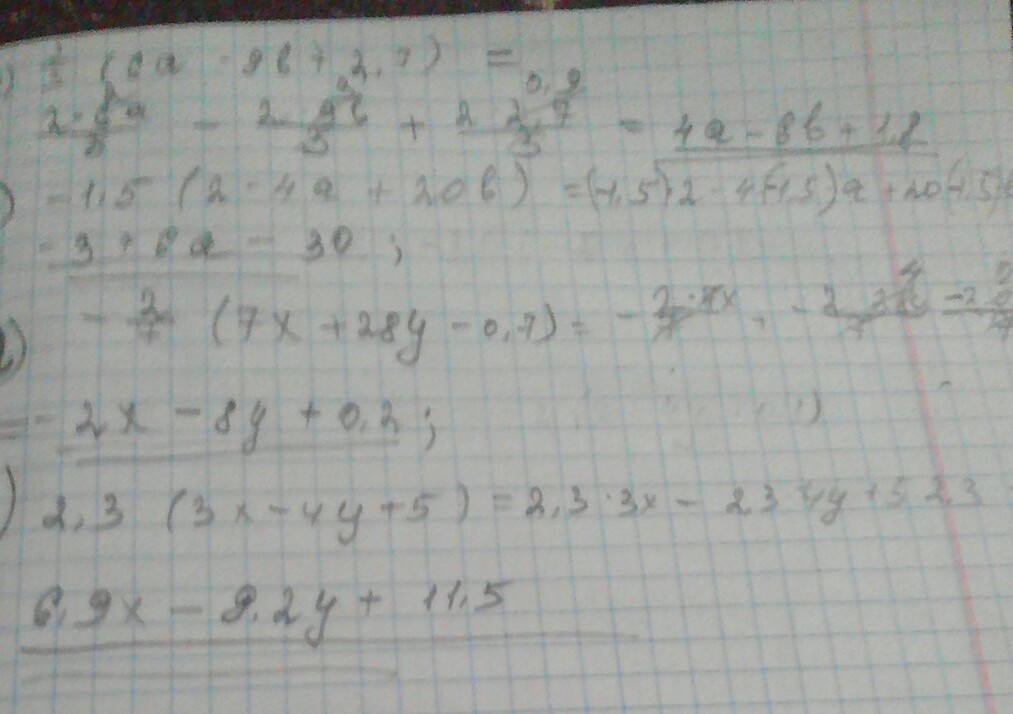 (6a - 9b + 2,7) =
2·6a/3 - 2 9b/3 + 2 2,7/3 = 4a - 6b + 1,8
) -1,5 (2 - 4a + 20b) = (-1,5)·2 - 4(-1,5)a + 20(-1,5)b
- 3 + 6a - 30 ;
- 2/7 (7x + 28y - 0,7) = - 2·7x/7 - 2 28/7
= - 2x - 8y + 0,2 ;
) 2,3 (3x - 4y + 5) = 2,3·3x - 2,3 4y + 5 2,3
6,9x - 9,2y + 11,5